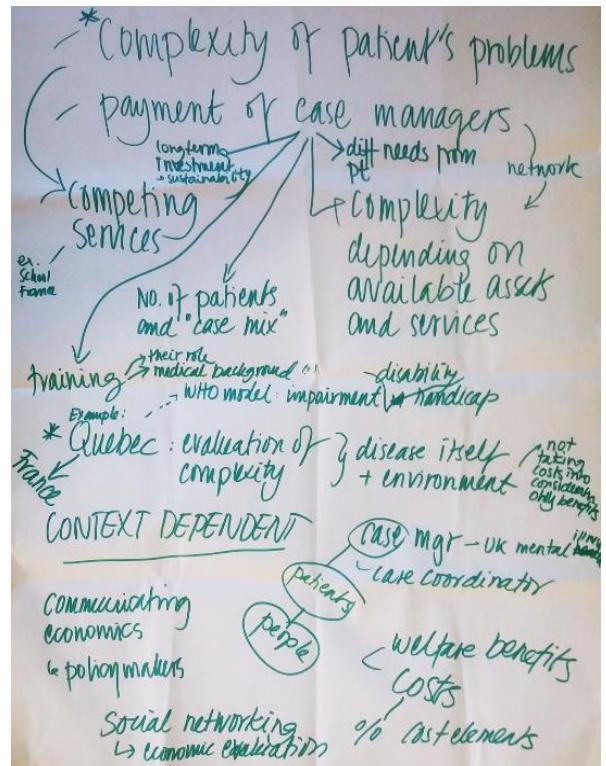 * Complexity of patient's problems
- payment of case managers
longterm
investment
+ sustainability
→ diff needs from
pt
network
Competing
services
ex.
School
France
Complexity
depending on
available assets
and services
No. of patients
and "case mix"
training
their role
medical background
disability
WHO model: impairment handicap
Example:
* Quebec: evaluation of
complexity
} disease itself
+ environment
not
taking
costs into
only benefits
France
CONTEXT DEPENDENT
case mgr - UK mental
- case coordinator
patients
people
Communicating
economics
↳ policymakers
welfare benefits
costs
% cost elements
Social networking
↳ economic evaluation